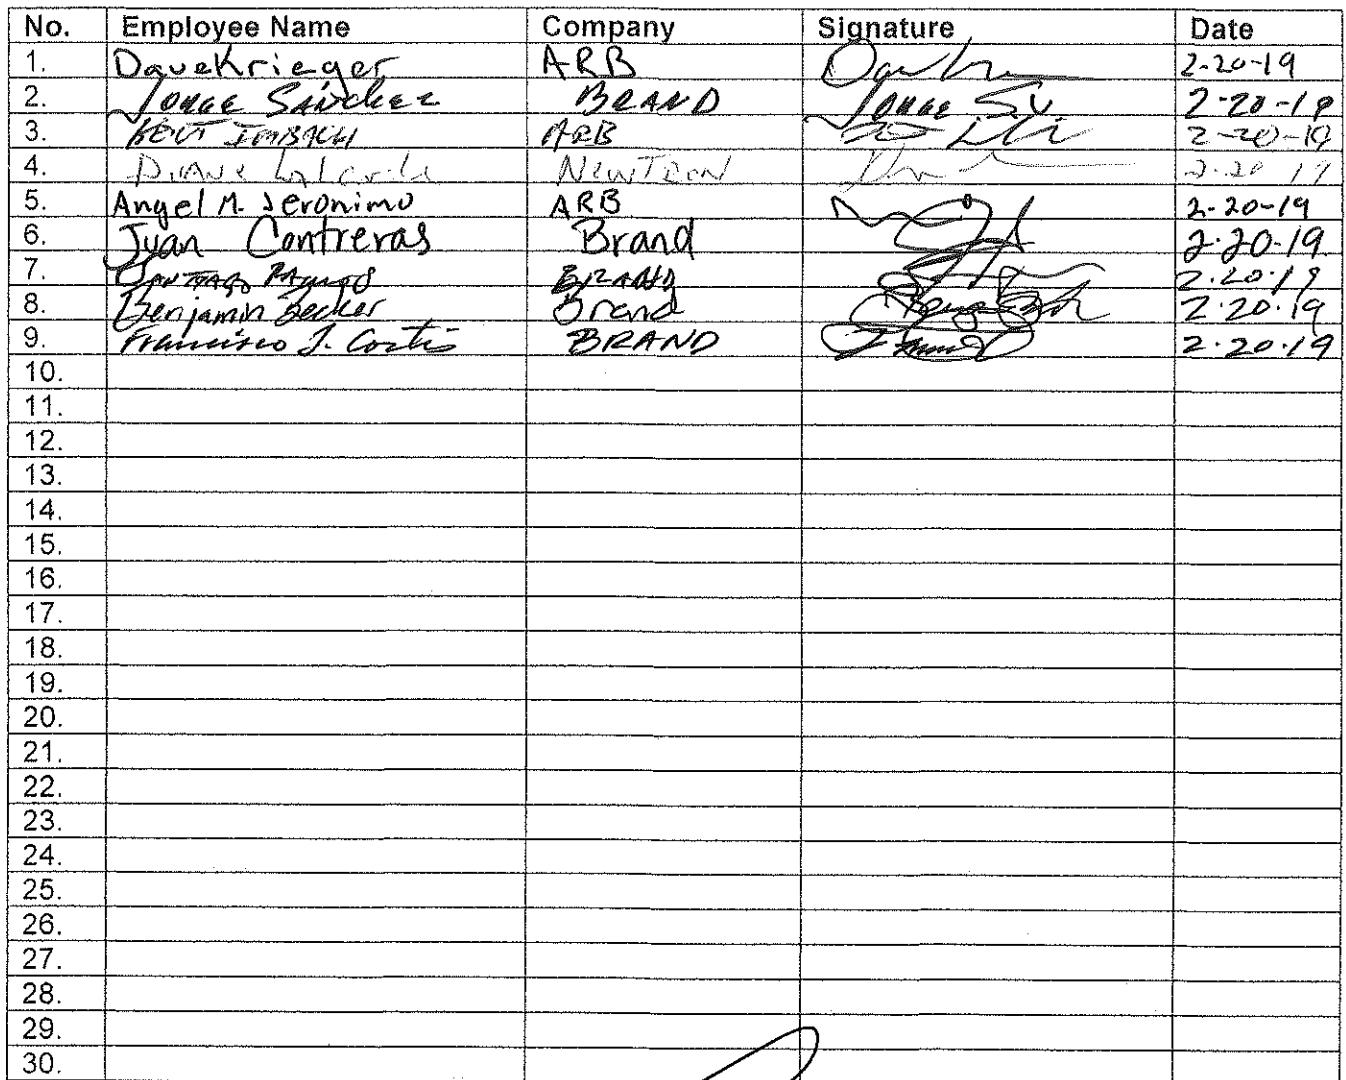 No. Employee Name Company Signature Date
1. Dave Krieger ARB 2-20-19
2. Jorge Sánchez BRAND Jorge 2-20-19
3. KENT IMBACH ARB 2-20-19
4. Duane NEWTRON 2-20 19
5. Angel M. Jeronimo ARB 2-20-19
6. Juan Contreras Brand 2-20-19
7. Santiago Ramos BRAND 2-20-19
8. Benjamin Becker Brand 2-20-19
9. Francisco J. BRAND 2-20-19
10.
11.
12.
13.
14.
15.
16.
17.
18.
19.
20.
21.
22.
23.
24.
25.
26.
27.
28.
29.
30.